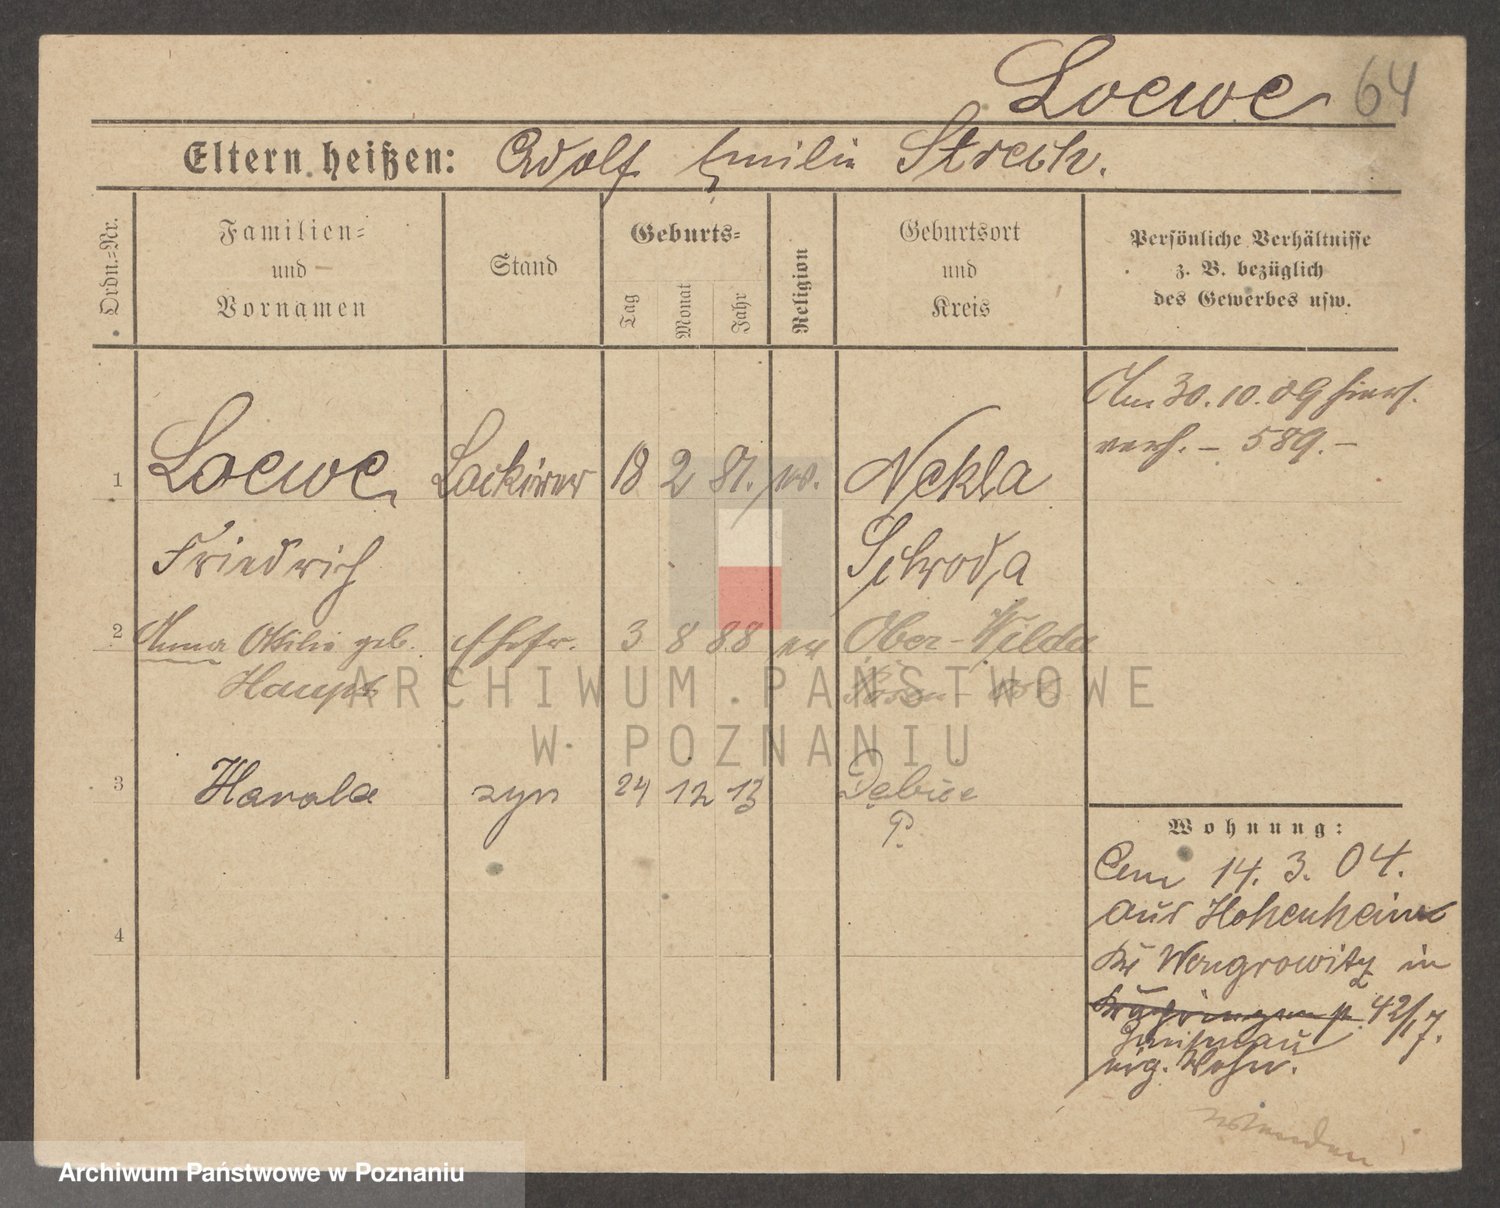 Loewe 64
Eltern heißen: Adolf Emilie Strech.
Ordn.-Nr.
Familien-
und
Vornamen
Stand
Geburts-
Tag
Monat
Jahr
Religion
Geburtsort
und
Kreis
Persönliche Verhältnisse
z. B. bezüglich
des Gewerbes usw.
Am 30.10.09 hiers.
verh. – 589. –
1 Loewe, Lackirer 18 2 81. ev. Nekla
Friedrich Schroda
2 Anna Ottilie geb. Ehefr. 3 8 88 ev Ober-Wilda
Haupt Posen
3 Harald syn 24 12 13 Dębiec
P.
4
Wohnung:
14. 3. 04.
aus Hohenheim
Kr Wongrowitz in
42/17.
eig. Wohn.
wenden
ARCHIWUM PAŃSTWOWE
W POZNANIU
Archiwum Państwowe w Poznaniu